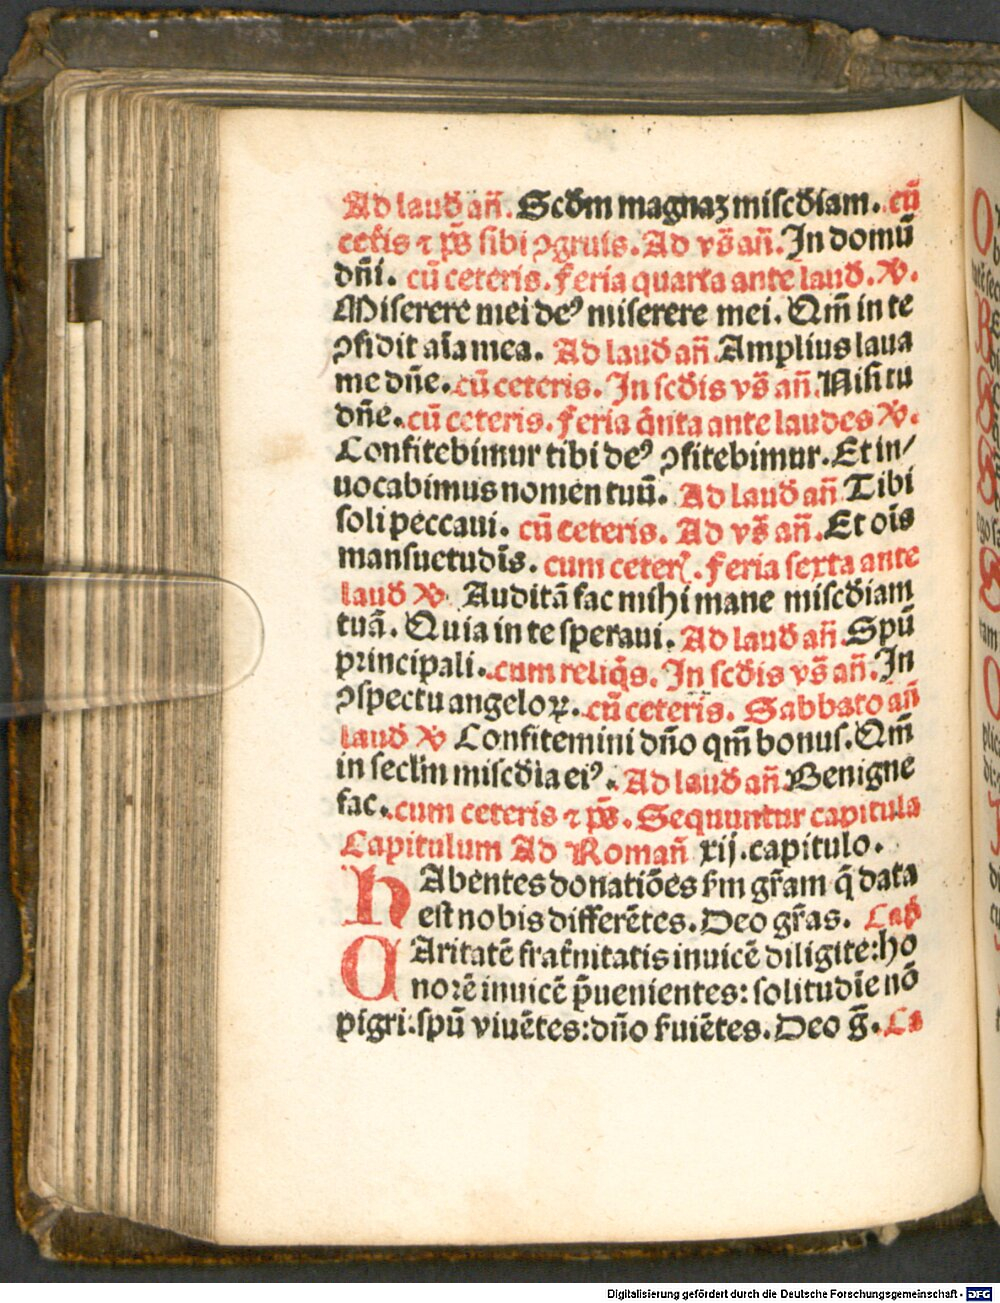 Ad laud̄ an̄. Scd̄m magnaꝫ miscd̄iam. cū
cet̄is ⁊ p̄s sibi ꝯgruis. Ad vs̄ an̄. In domū
dn̄i. cū ceteris. Feria quarta ante laud̄. ℣.
Miserere mei deꝰ miserere mei. Qm̄ in te
ꝯfidit aīa mea. Ad laud̄ an̄ Amplius laua
me dn̄e. cū ceteris. In scd̄is vs̄ an̄. Nisi tu
dn̄e. cū ceteris. Feria q̄inta ante laudes ℣.
Confitebimur tibi deꝰ ꝯfitebimur. Et in/
uocabimus nomen tuū. Ad laud̄ an̄ Tibi
soli peccaui. cū ceteris. Ad vs̄ an̄. Et oīs
mansuetudīs. cum ceter̄. Feria sexta ante
laud̄ ℣ Auditā fac mihi mane miscd̄iam
tuā. Quia in te speraui. Ad laud̄ an̄ Spū
principali. cum reliq̄s. In scd̄is vs̄ an̄. In
ꝯspectu angeloꝝ. cū ceteris. Sabbato an̄
laud̄ ℣ Confitemini dn̄o qm̄ bonus. Qm̄
in secl̄m miscd̄ia eiꝰ. Ad laud̄ an̄ Benigne
fac. cum ceteris ⁊ p̄s. Sequuntur capitula
Capitulum Ad Roman̄ xij. capitulo.
HAbentes donatiōes s̄m gr̄am q̄ data
est nobis differētes. Deo gr̄as. Cap̄
CAritatē frat̄nitatis inuicē diligite: ho
norē inuicē p̄uenientes: solitudīe nō
pigri. spū viuētes: dn̄o s̄uiētes. Deo ḡ. Ca